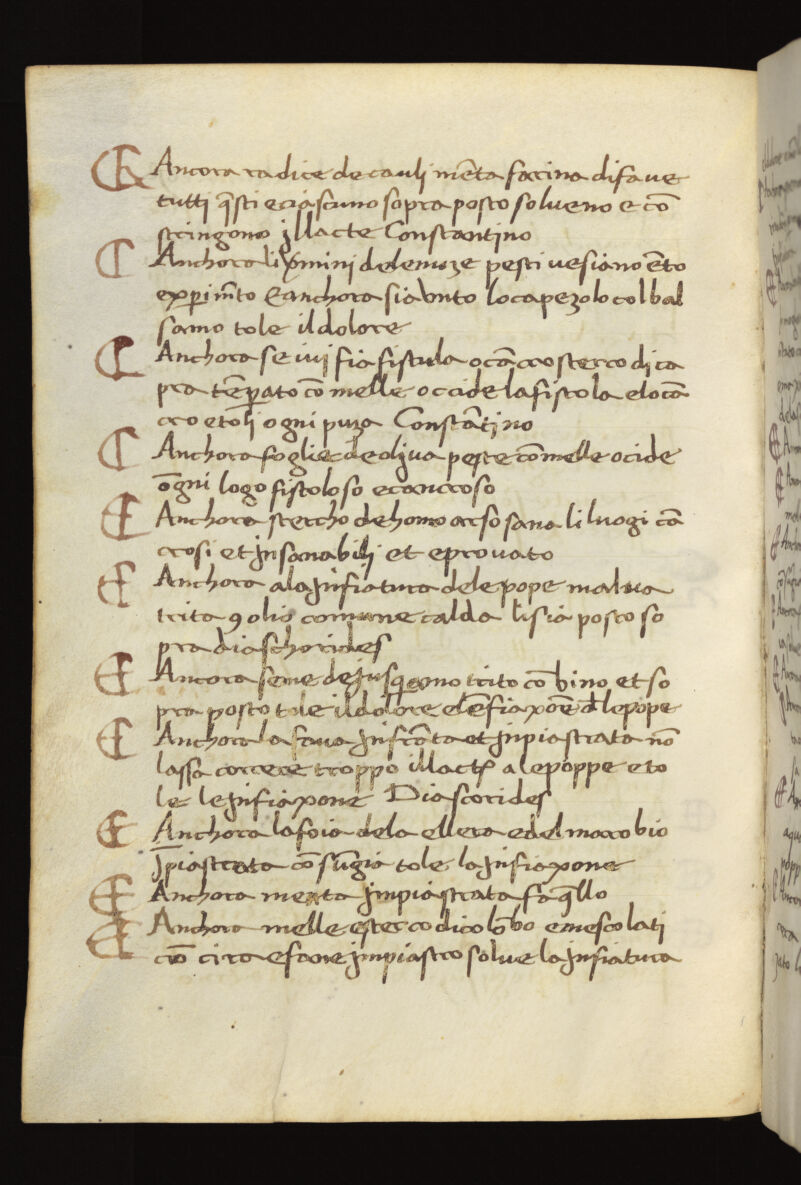 Ancora radice de cauli mẽta farina di faue
tutti q̃sti e ciascuno sopra posto solueno e cõ
stringono illacte Constantino
Anchora li vmini dele noze pesti vesiano ẽto
experim̃to Eanchora sia vnto lo capezolo col bal
samo tole il dolore
Anchora se iui fia fistula o cãcro sterco di ca
pra tẽperato cõ melle occide la fistola elo cã
cro e toli ogni puza Constãtino
Anchora foglie de oliua peste cõ melle ocide
õgni logo fistoloso e cancroso
Anchora stercho de homo arso sana li luogi cã
crosi et insanabili et e prouato
Anchora ala infiatura dele pope malua
trita 9 olio comune calda li sia posto so
pra diaschorides
Ancora seme de iusquamo trito cõ vino et so
pra posto tole il dolore elẽfiaxõe d̃ le pope
Anchora la faua infrãta et inpiastrata nõ
lassa correre troppo illacte ale poppe e to
le le infiaxone Diascorides
Anchora la foia dela ellera e del marobio
ĩpiastrata cõ sũgia tole la infiaxone
Anchora menta impiastrata fa q̃llo
Anchora melle e sterco di colõbo e mescolati
cõ cira e fane impiastro solue la infiatura